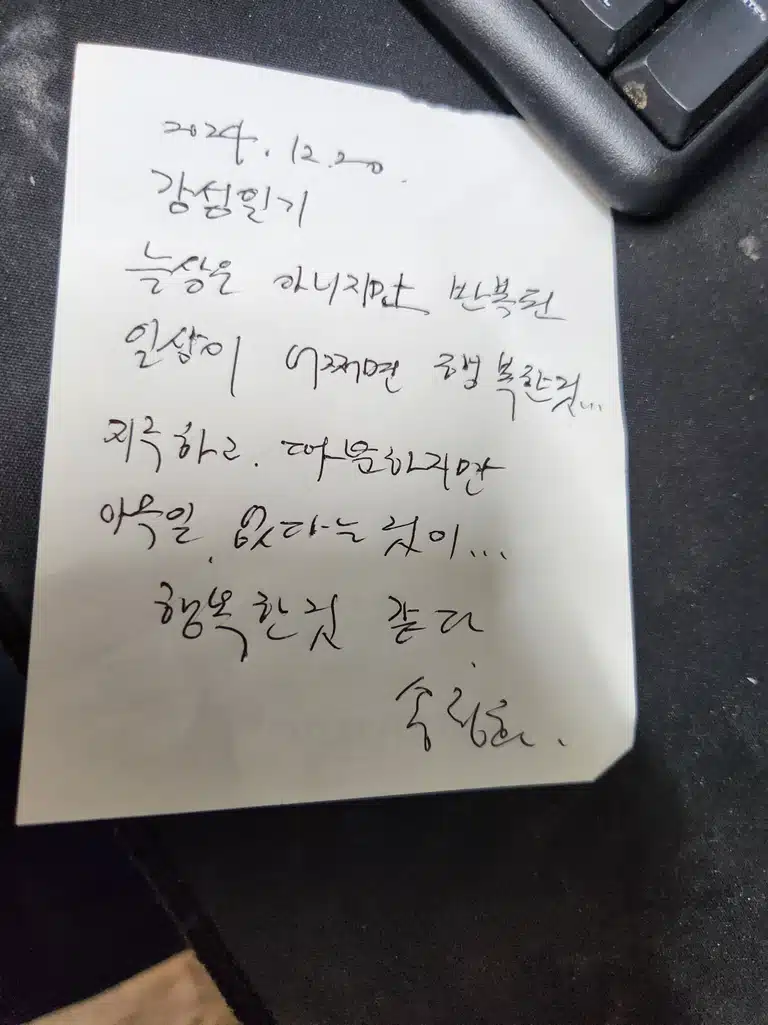 2024.12.20.
감성일기
늘상은 아니지만 반복된
일상이 어쩌면 행복한것...
지루하고. 따분하지만
아무일 없다는 것이...
행복한것 같다.
송